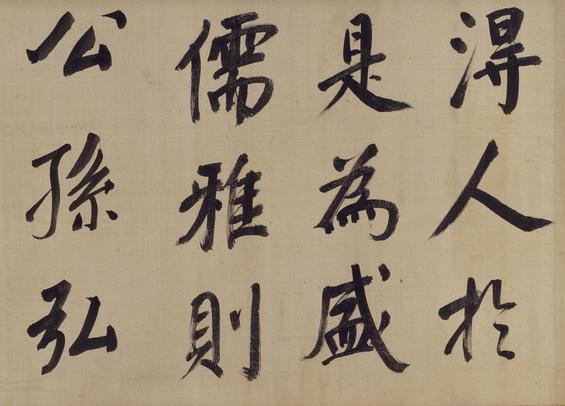 得人於
是為盛
儒雅則
公孫弘